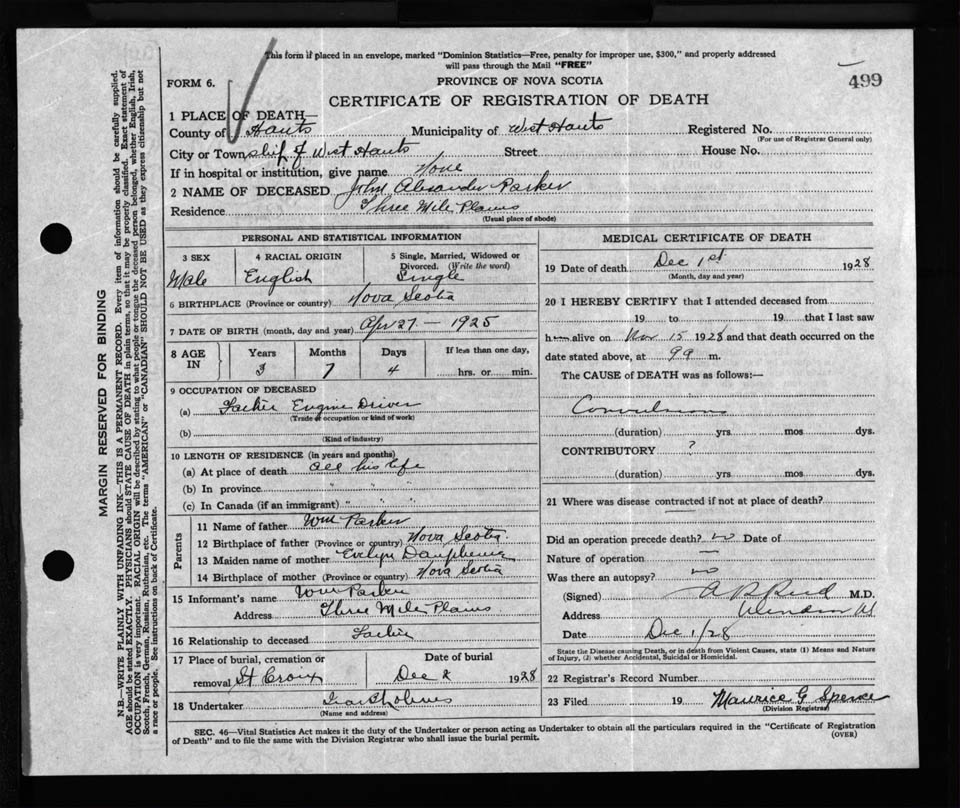 This form if placed in an envelope, marked "Dominion Statistics—Free, penalty for improper use, $300," and properly addressed
will pass through the Mail "FREE"
499
FORM 6.
PROVINCE OF NOVA SCOTIA
CERTIFICATE OF REGISTRATION OF DEATH
1 PLACE OF DEATH
County of Hants Municipality of West Hants Registered No.
(For use of Registrar General only)
City or Township of West Hants Street House No.
If in hospital or institution, give name None
2 NAME OF DECEASED John Alexander Parker
Residence Three Mile Plains
(Usual place of abode)
MARGIN RESERVED FOR BINDING
N.B.—WRITE PLAINLY WITH UNFADING INK—THIS IS A PERMANENT RECORD. Every item of information should be carefully supplied.
AGE should be stated EXACTLY. PHYSICIANS should STATE CAUSE OF DEATH in plain terms, so that it may be properly classified. Exact statement of
OCCUPATION is very important. RACIAL ORIGIN will be described by stating to what people or tongue the deceased person belonged, whether English, Irish,
Scotch, French, German, Russian, Ruthenian, etc. The terms "AMERICAN" or "CANADIAN" SHOULD NOT BE USED as they express citizenship but not
a race or people. See instructions on back of Certificate.
PERSONAL AND STATISTICAL INFORMATION
3 SEX 4 RACIAL ORIGIN 5 Single, Married, Widowed or
Divorced. (Write the word)
Male English Single
6 BIRTHPLACE (Province or country) Nova Scotia
7 DATE OF BIRTH (month, day and year) Apr 27 — 1925
8 AGE IN Years Months Days If less than one day,
3 7 4 hrs. or min.
9 OCCUPATION OF DECEASED
(a) Father Engine Driver
(Trade or occupation or kind of work)
(b)
(Kind of industry)
10 LENGTH OF RESIDENCE (in years and months)
(a) At place of death all his life
(b) In province " " "
(c) In Canada (if an immigrant) " " "
Parents
11 Name of father Wm Parker
12 Birthplace of father (Province or country) Nova Scotia
13 Maiden name of mother Evelyn
14 Birthplace of mother (Province or country) Nova Scotia
15 Informant's name Wm Parker
Address Three Mile Plains
16 Relationship to deceased Father
17 Place of burial, cremation or Date of burial
removal St Croix Dec 2 1928
18 Undertaker Ira Holmes
(Name and address)
MEDICAL CERTIFICATE OF DEATH
19 Date of death Dec 1st 1928
(Month, day and year)
20 I HEREBY CERTIFY that I attended deceased from
19 to 19 that I last saw
h alive on Nov 15 1928 and that death occurred on the
date stated above, at 9 a m.
The CAUSE of DEATH was as follows:—
Convulsions
(duration) yrs mos dys.
CONTRIBUTORY ?
(duration) yrs mos dys.
21 Where was disease contracted if not at place of death?
Did an operation precede death? no Date of
Nature of operation —
Was there an autopsy? no
(Signed) A B Reid M.D.
Address Windsor
Date Dec 1/28
State the Disease causing Death, or in death from Violent Causes, state (1) Means and Nature
of Injury, (2) whether Accidental, Suicidal or Homicidal.
22 Registrar's Record Number
23 Filed 19 Maurice G Spence
(Division Registrar)
SEC. 46—Vital Statistics Act makes it the duty of the Undertaker or person acting as Undertaker to obtain all the particulars required in the "Certificate of Registration
of Death" and to file the same with the Division Registrar who shall issue the burial permit.
(OVER)